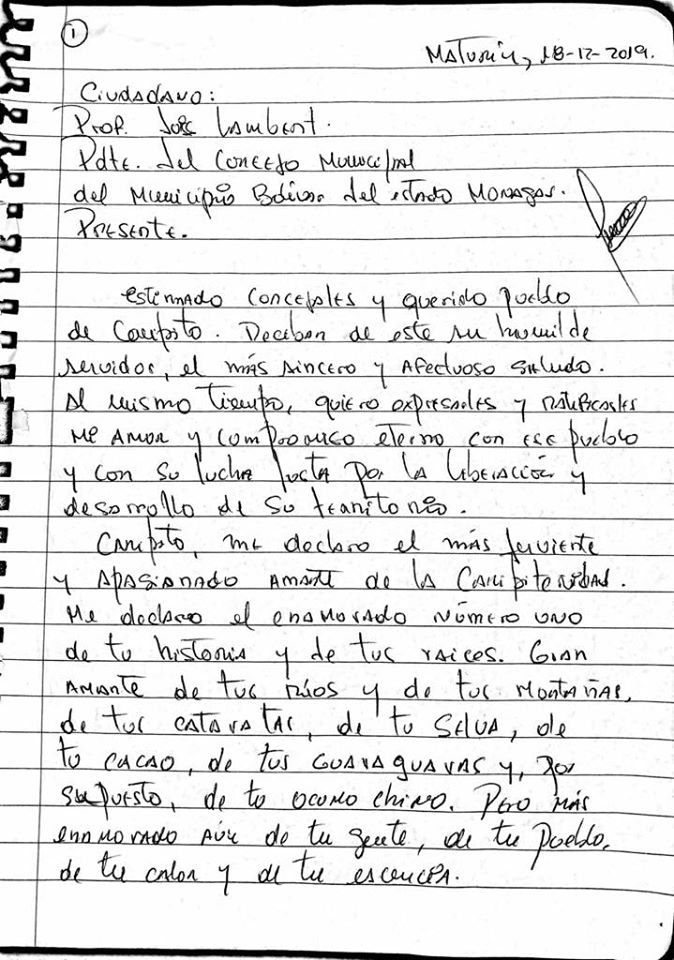 1
Maturín, 18-12-2019.
Ciudadano:
Prof. José Lambert.
Pdte. del Concejo Municipal
del Municipio Bolívar del estado Monagas.
Presente.
estimado concejales y querido pueblo
de Caripito. Reciban de este su humilde
servidor, el más sincero y afectuoso saludo.
Al mismo tiempo, quiero expresarles y ratificarles
mi amor y compromiso eterno con ese pueblo
y con su lucha justa por la liberación y
desarrollo de su territorio.
Caripito, me declaro el más ferviente
y apasionado amante de la Caripiteñidad.
Me declaro el enamorado número uno
de tu historia y de tus raíces. Gran
amante de tus ríos y de tus montañas,
de tus cataratas, de tu selva, de
tu cacao, de tus guaraguaras y, por
supuesto, de tu ocumo chino. Pero más
enamorado aún de tu gente, de tu pueblo,
de tu calor y de tu esencia.